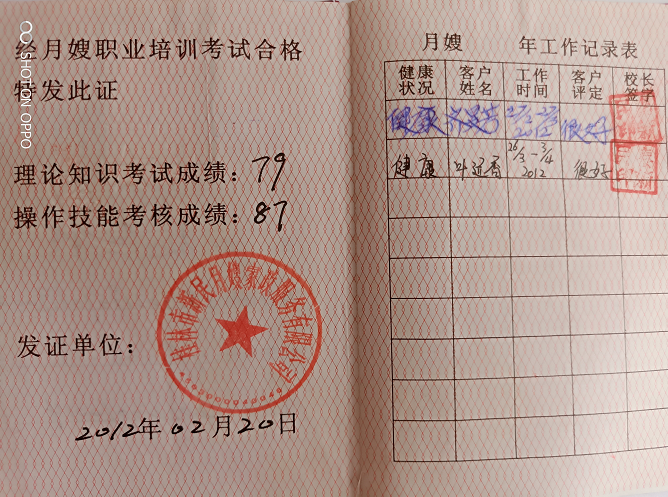 经月嫂职业培训考试合格
特发此证
理论知识考试成绩：79
操作技能考核成绩：87
发证单位：
桂林市新民月嫂家政服务有限公司
2012年02月20日
SHOT ON OPPO
月嫂 年工作记录表
健康状况 客户姓名 工作时间 客户评定 校长签字
健康 2012 很好
健康 26/3-3/4 2012 很好